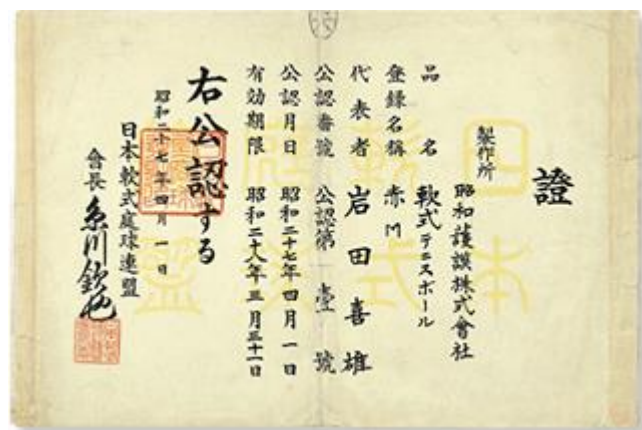 證
製作所
昭和護謨株式會社
品名 軟式テニスボール
登録名稱 赤M
代表者 岩田喜雄
公認番號 公認第一壹號
公認月日 昭和二十七年四月一日
有効期限 昭和二十八年三月三十一日
右公認する
昭和二十七年四月一日
日本軟式庭球連盟
會長